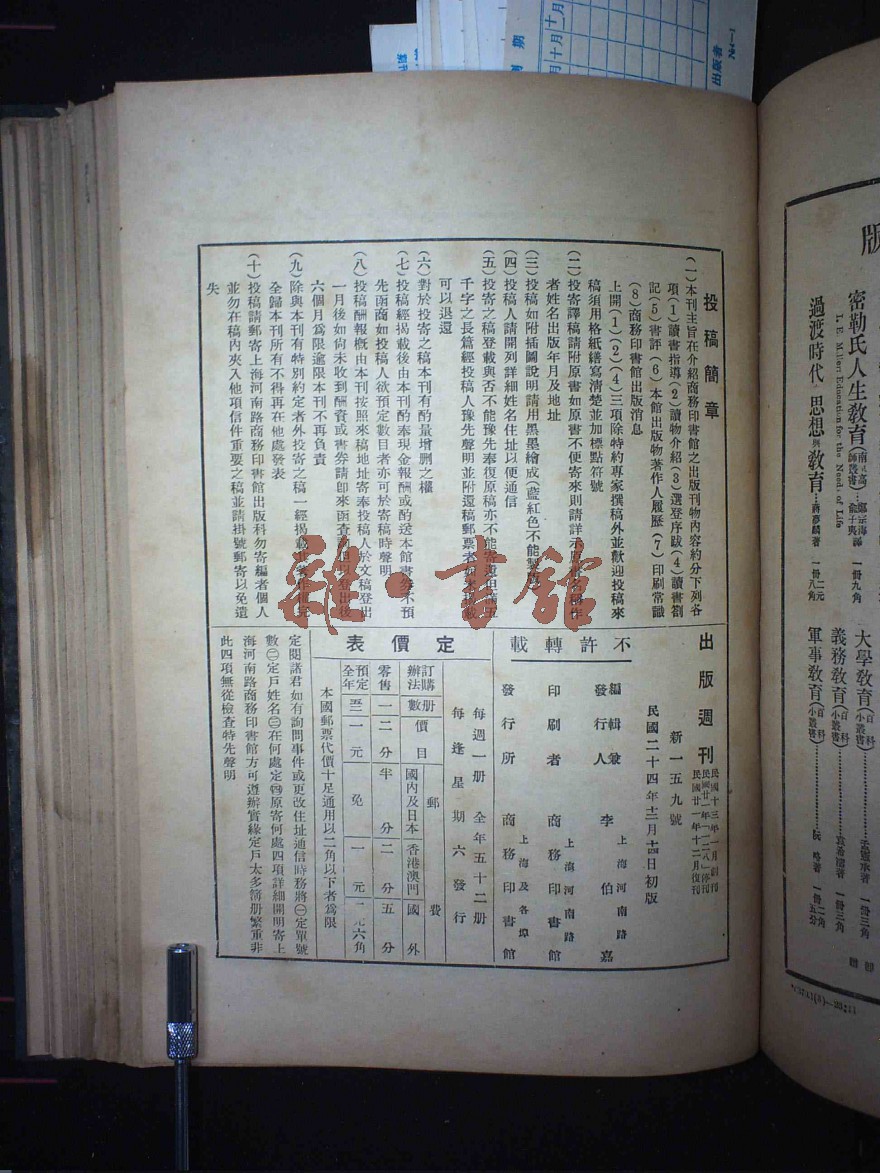 投稿簡章
(一)本刊主旨在介紹商務印書館之出版刊物內容約分下列各
項(1)讀書指導(2)讀物介紹(3)選登序跋(4)讀書劄
記(5)書評(6)本館出版物著作人履歷(7)印刷常識
(8)商務印書館出版消息
上開(1)(2)(4)三項除特約專家撰稿外並歡迎投稿來
稿須用格紙繕寫清楚並加標點符號
(二)投寄譯稿請附原書如原書不便寄來則請詳
者姓名出版年月及地址
(三)投稿如附插圖說明請用黑墨繪成(藍紅色不能製
(四)投稿人請開列詳細姓名住址以便通信
(五)投寄之稿登載與否不能豫先奉復原稿亦不能寄還
千字之長篇經投稿人豫先聲明並附還稿郵票者如未揭載
可以退還
(六)對於投寄之稿本刊有酌量增删之權
(七)投稿經揭載後由本刊酌奉現金報酬或酌送本館書券不預
先函商如投稿人欲預定數目者亦可於寄稿時聲明
(八)投稿酬報概由本刊按照來稿地址寄奉投稿人於文稿登出
一月後如尙未收到酬資或書券請卽來函查
以登出後
六個月爲限逾限本刊不再負責
(九)除與本刊有特別約定者外投寄之稿一經揭載
全歸本刊所有不得再在他處發表
(十)投稿請郵寄上海河南路商務印書館出版科勿寄編者個人
並勿在稿內夾入他項信件重要之稿並請掛號郵寄以免遺
失
出版週刊
民國十三年一月創刊
民國廿一年一二八停刊
民國廿一年十二月復刊
新一五九號
民國二十四年十二月十四日初版
不許轉載
編輯兼發行人 李伯嘉
上海河南路
印刷者 商務印書館
上海河南路
發行所 商務印書館
上海及各埠
定價表
每週一册 全年五十二册
每逢星期六發行
訂購辦法 册數 價目 郵費
國內及日本 香港澳門 國外
零售 一 二分 半分 二分 五分
預定全年 一元 免 一元 一元六角
本國郵票代價十足通用以二角以下者爲限
定閱諸君如有詢問事件或更改住址通信時務將㊀定單號
數㊁定戶姓名㊂在何處定㊃原寄何處四項詳細開明寄上
海河南路商務印書館方可遵辦實緣定戶太多簡册繁重非
此四項無從檢查特先聲明
雜·書館
版
密勒氏人生教育
I. E. Miller: Education for the Needs of Life
鄭宗海
俞子夷
譯 一册九角
過渡時代之思想與教育
蔣夢麟著 一册二元八角
大學教育(百科小叢書) 孟憲承著 一册三角
義務教育(百科小叢書) 袁希濤著 一册三角
軍事教育(百科小叢書) 阮 著 一册二角五分
期
出版者